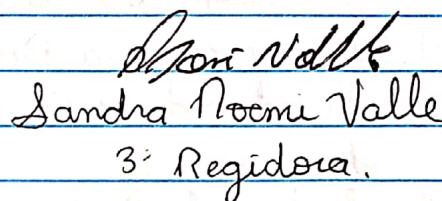 Sandra Noemi Valle
3: Regidora.